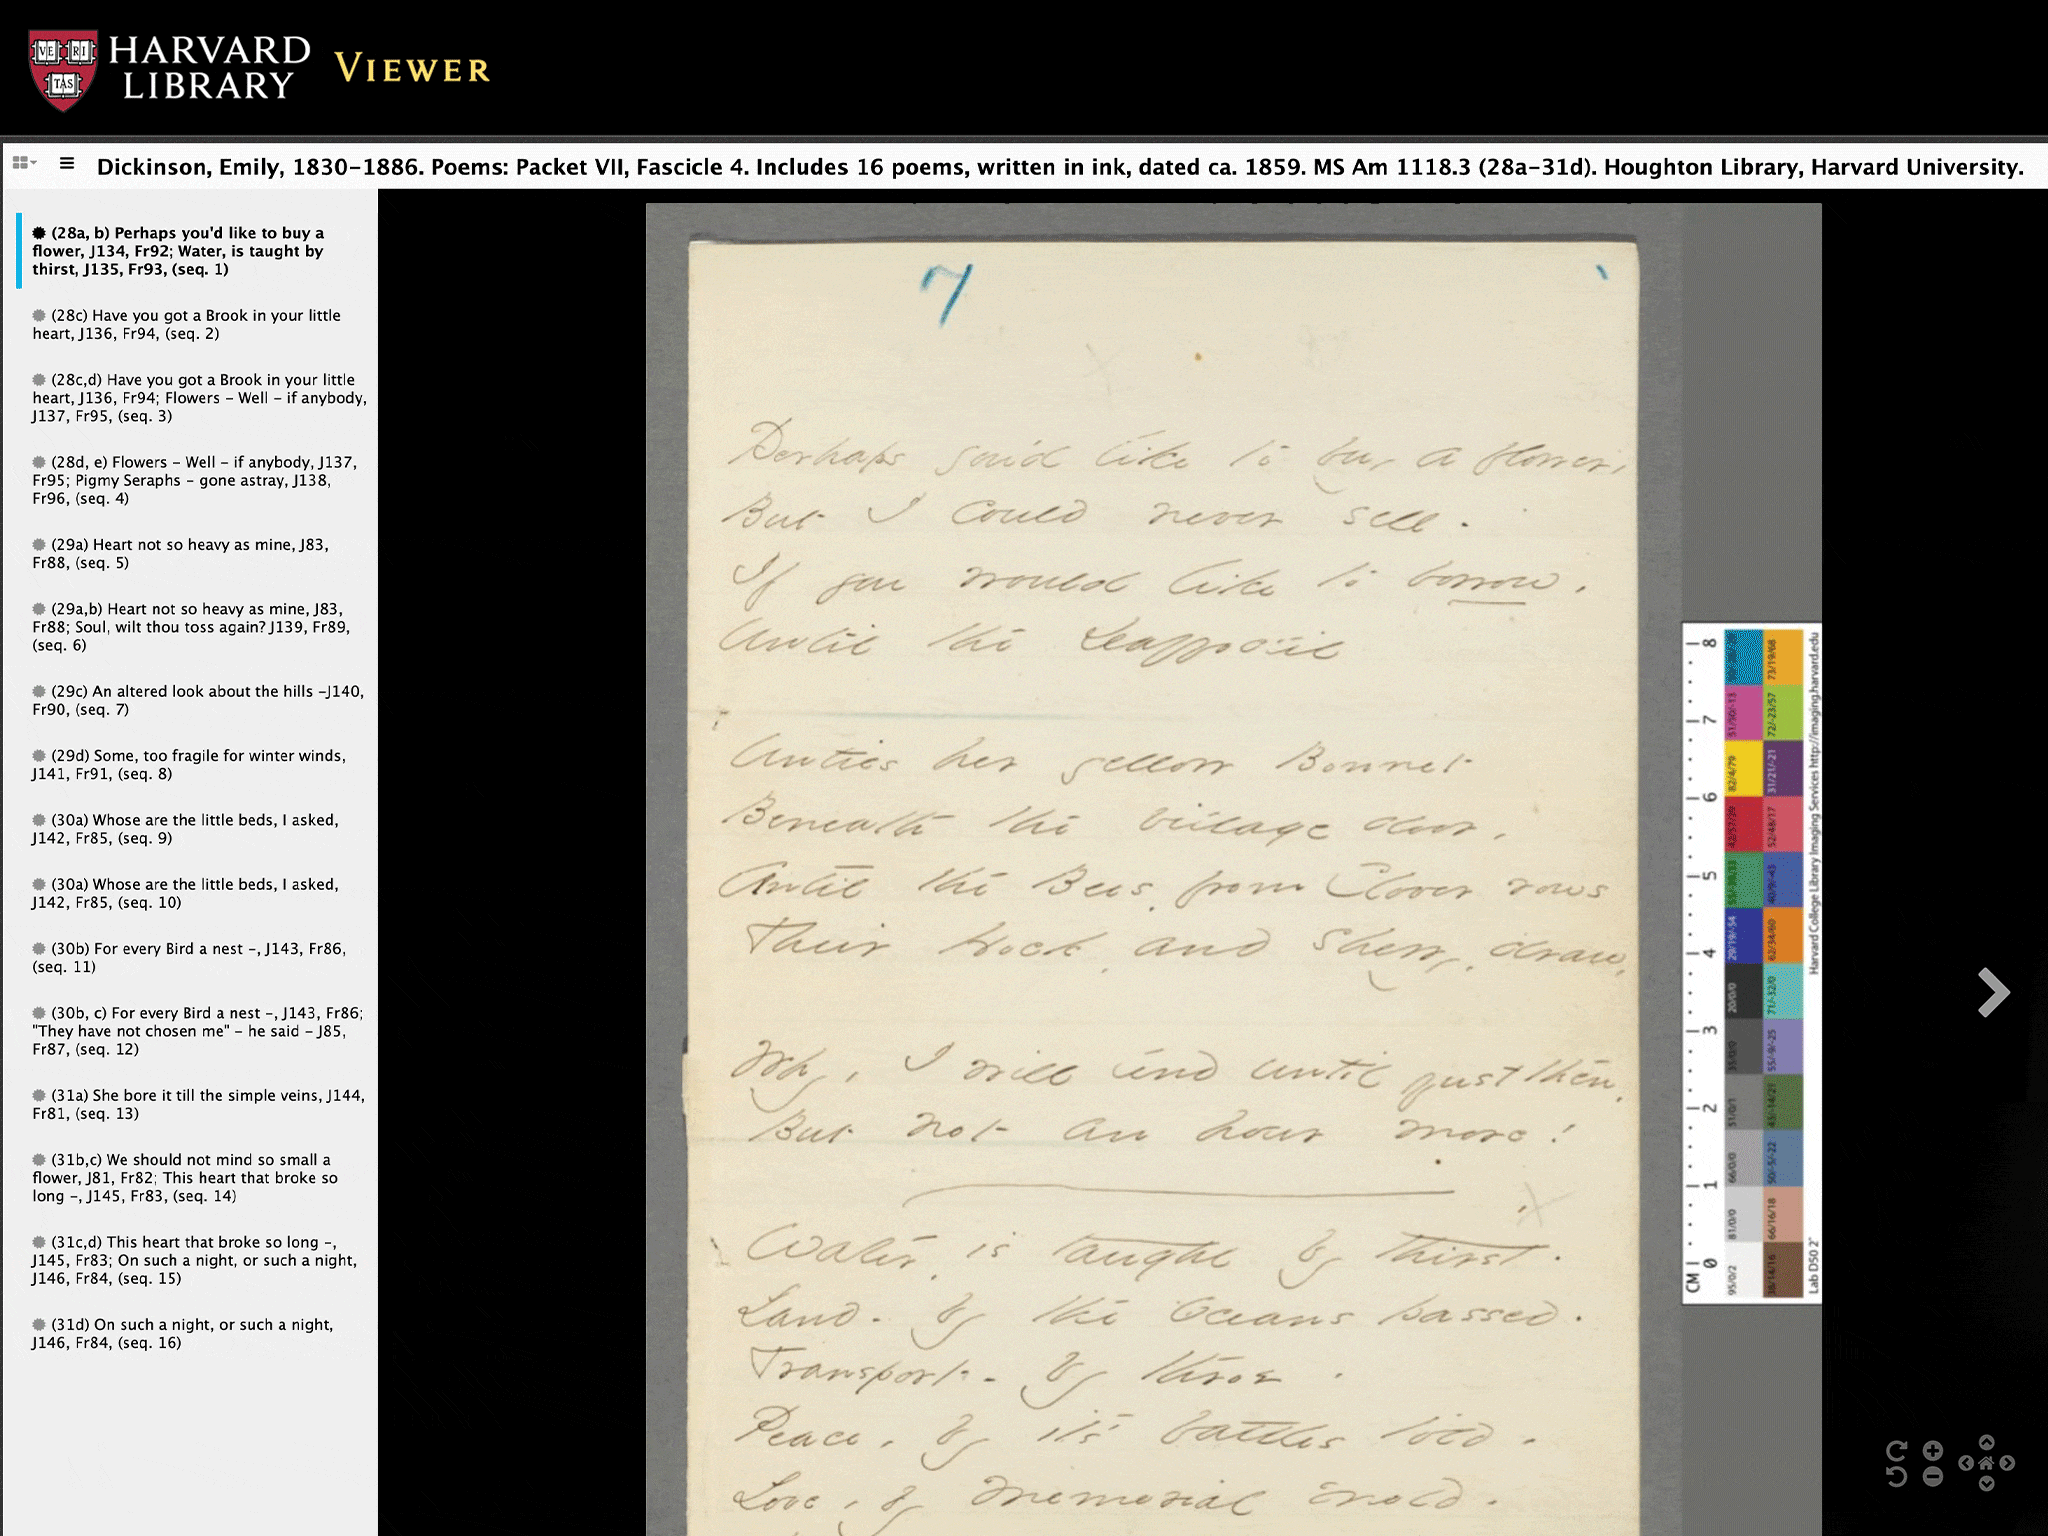 VE RI TAS
HARVARD
LIBRARY
VIEWER
Dickinson, Emily, 1830-1886. Poems: Packet VII, Fascicle 4. Includes 16 poems, written in ink, dated ca. 1859. MS Am 1118.3 (28a-31d). Houghton Library, Harvard University.
(28a, b) Perhaps you'd like to buy a
flower, J134, Fr92; Water, is taught by
thirst, J135, Fr93, (seq. 1)
(28c) Have you got a Brook in your little
heart, J136, Fr94, (seq. 2)
(28c,d) Have you got a Brook in your little
heart, J136, Fr94; Flowers - Well - if anybody,
J137, Fr95, (seq. 3)
(28d, e) Flowers - Well - if anybody, J137,
Fr95; Pigmy Seraphs - gone astray, J138,
Fr96, (seq. 4)
(29a) Heart not so heavy as mine, J83,
Fr88, (seq. 5)
(29a,b) Heart not so heavy as mine, J83,
Fr88; Soul, wilt thou toss again? J139, Fr89,
(seq. 6)
(29c) An altered look about the hills -J140,
Fr90, (seq. 7)
(29d) Some, too fragile for winter winds,
J141, Fr91, (seq. 8)
(30a) Whose are the little beds, I asked,
J142, Fr85, (seq. 9)
(30a) Whose are the little beds, I asked,
J142, Fr85, (seq. 10)
(30b) For every Bird a nest -, J143, Fr86,
(seq. 11)
(30b, c) For every Bird a nest -, J143, Fr86;
"They have not chosen me" - he said - J85,
Fr87, (seq. 12)
(31a) She bore it till the simple veins, J144,
Fr81, (seq. 13)
(31b,c) We should not mind so small a
flower, J81, Fr82; This heart that broke so
long -, J145, Fr83, (seq. 14)
(31c,d) This heart that broke so long -,
J145, Fr83; On such a night, or such a night,
J146, Fr84, (seq. 15)
(31d) On such a night, or such a night,
J146, Fr84, (seq. 16)
7
Perhaps you'd like to buy a flower,
But I could never sell.
If you would like to borrow,
Until the Daffodil
Unties her yellow Bonnet
Beneath the village door,
Until the Bees, from Clover rows
Their Hock, and Sherry, draw,
Why, I will lend until just then,
But not an hour more!
Water, is taught by thirst.
Land - by the Oceans passed.
Transport - by throe -
Peace, by it's battles told -
Love, by memorial mold -
CM 0 1 2 3 4 5 6 7 8
Harvard College Library Imaging Services http://imaging.harvard.edu
Lab D50 2°